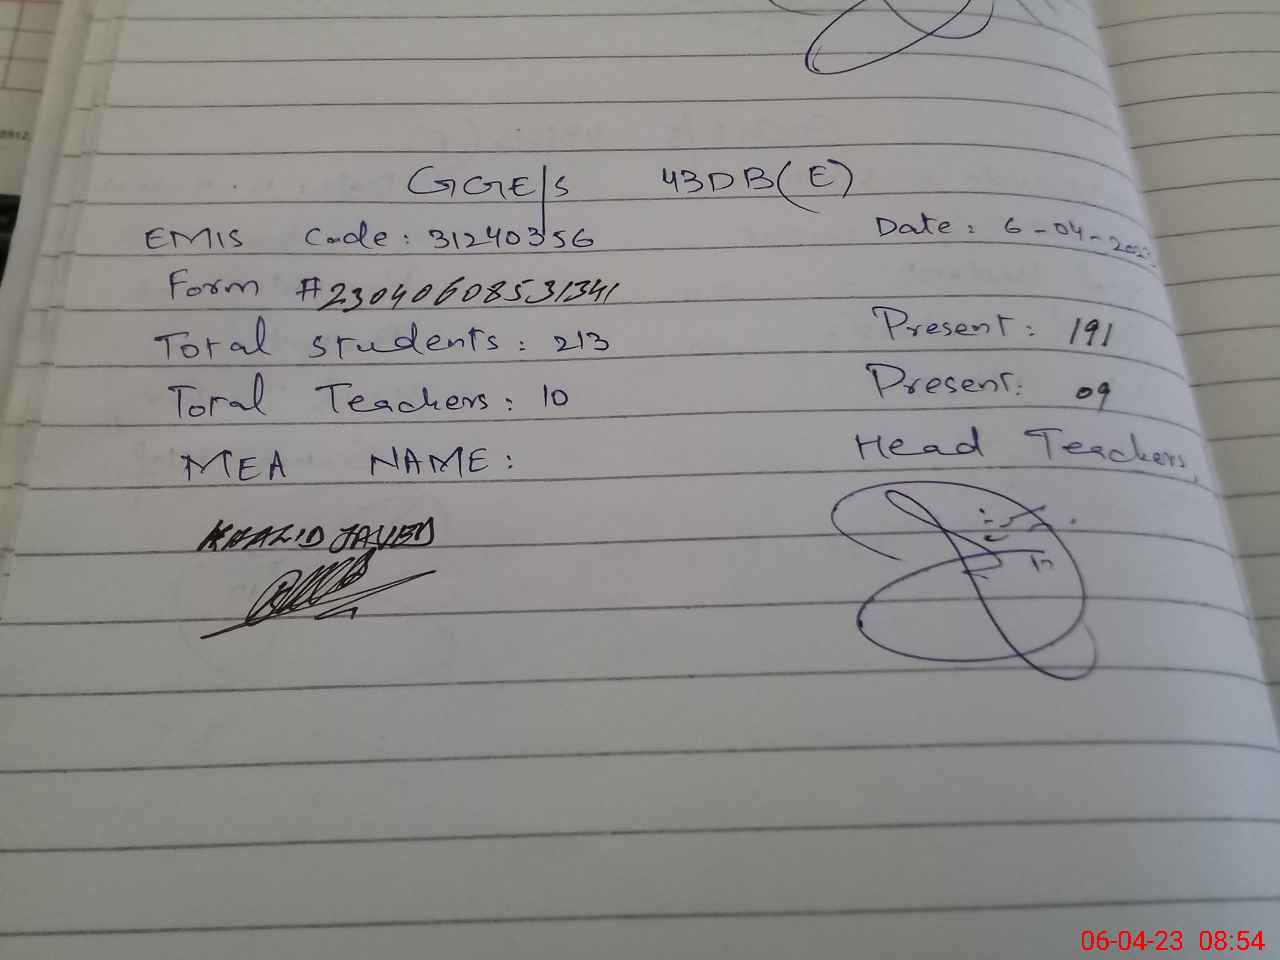 GGE/S 43DB(E)
EMIS Code: 31240356 Date: 6-04-2023
Form #23040608531341
Total students: 213 Present: 191
Total Teachers: 10 Present: 09
MEA NAME: Head Teachers,
KHALID JAVED
06-04-23 08:54